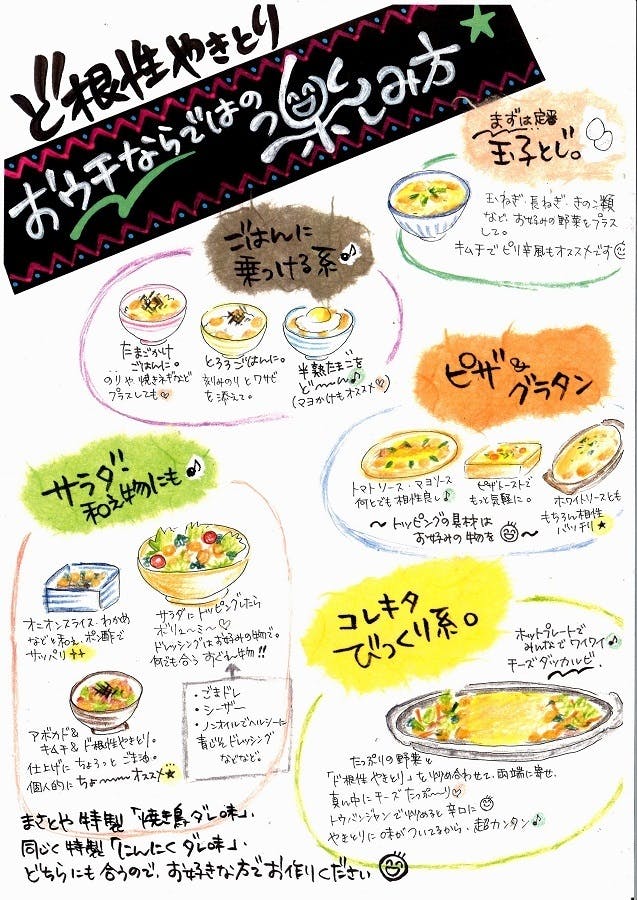 ど根性やきとり
おウチならではの楽しみ方
まずは定番
玉子とじ。
玉ねぎ、長ねぎ、きのこ類
など、お好みの野菜をプラス
して。
キムチでピリ辛風もオススメです
ごはんに
乗っける系♪
たまごかけ
ごはんに。
のりや焼きネギなど
プラスしても♡
とろろごはんに。
刻みのりとワサビ
を添えて。
半熟たまごを
ど〜〜ん♪
(マヨかけもオススメ♡)
ピザ&
グラタン
トマトソース・マヨソース
何とでも相性良し♪
ピザトーストで
もっと気軽に。
ホワイトソースとも
もちろん相性
バッチリ★
〜トッピングの具材は
お好みの物を〜
サラダ!
和え物にも♪
オニオンスライス・わかめ
などと和え、ポン酢で
サッパリ++
サラダにトッピングしたら
ボリュ〜ミ〜♡
ドレッシングはお好みの物で。
何でも合うすぐれ物!!
・ごまドレ
・シーザー
・ノンオイルでヘルシーに
青じそドレッシング
などなど。
アボカド&
キムチ&ど根性やきとり。
仕上げにちょろっとごま油。
個人的にちょ〜〜オススメ★
コレキタ
びっくり系。
ホットプレートで
みんなでワイワイ♪
チーズダッカルビ。
たっぷりの野菜と
「ど根性やきとり」を炒め合わせて、両端に寄せ、
真ん中にチーズたっぷ〜り♡
トウバンジャンで炒めると辛口に
やきとりに味がついてるから、超カンタン♪
まさとや特製「焼き鳥ダレ味」、
同じく特製「にんにくダレ味」、
どちらにも合うので、お好きな方でお作りください